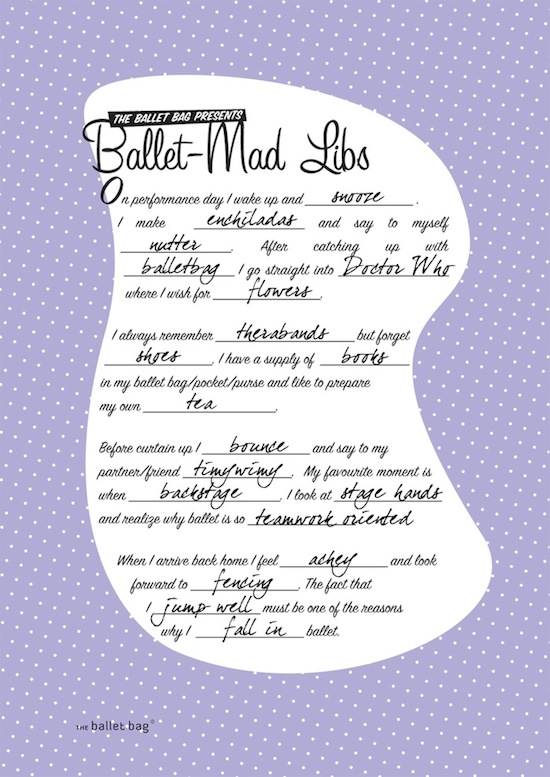 THE BALLET BAG PRESENTS
Ballet-Mad Libs
On performance day I wake up and snooze.
I make enchiladas and say to myself
nutter. After catching up with
balletbag I go straight into Doctor Who
where I wish for flowers.
I always remember therabands but forget
shoes. I have a supply of books
in my ballet bag/pocket/purse and like to prepare
my own tea.
Before curtain up I bounce and say to my
partner/friend timywimy. My favourite moment is
when backstage, I look at stage hands
and realize why ballet is so teamwork oriented
When I arrive back home I feel achey and look
forward to fencing. The fact that
I jump well must be one of the reasons
why I fall in ballet.
THE ballet bag©